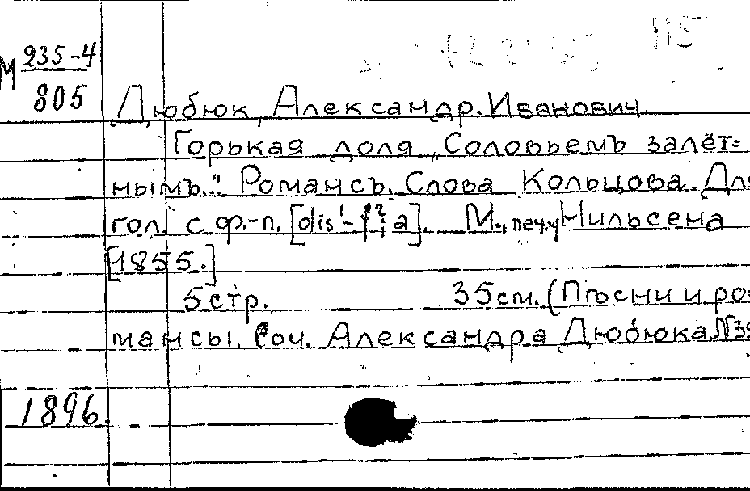 М 935-4
805
Дюбюк, Александр Иванович
Горькая доля „Соловьемъ залёт=
нымъ." Романсъ. Слова Кольцова. Для
гол. с ф.-п. [dis¹-fis²; a]. М., печ. у Нильсена
[1855.]
5 стр. 35 см. (Пѣсни и ро-
мансы. Соч. Александра Дюбюка №
1896